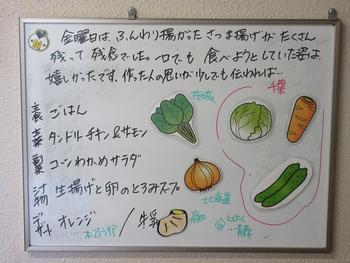 金曜日は、ふんわり揚がった さつま揚げが たくさん
残って 残念でした。一口でも 食べようとしていた姿は
嬉しかったです。作った人の思いが少しでも伝われば…
主 ごはん
菜 タンドリーチキン&サモン
副 コーンわかめサラダ
汁物 生揚げと卵のとろみスープ
デザート オレンジ
…オーストラリア
/ 牛乳
茨城
千葉
北海道
高知
にんにく
…青森